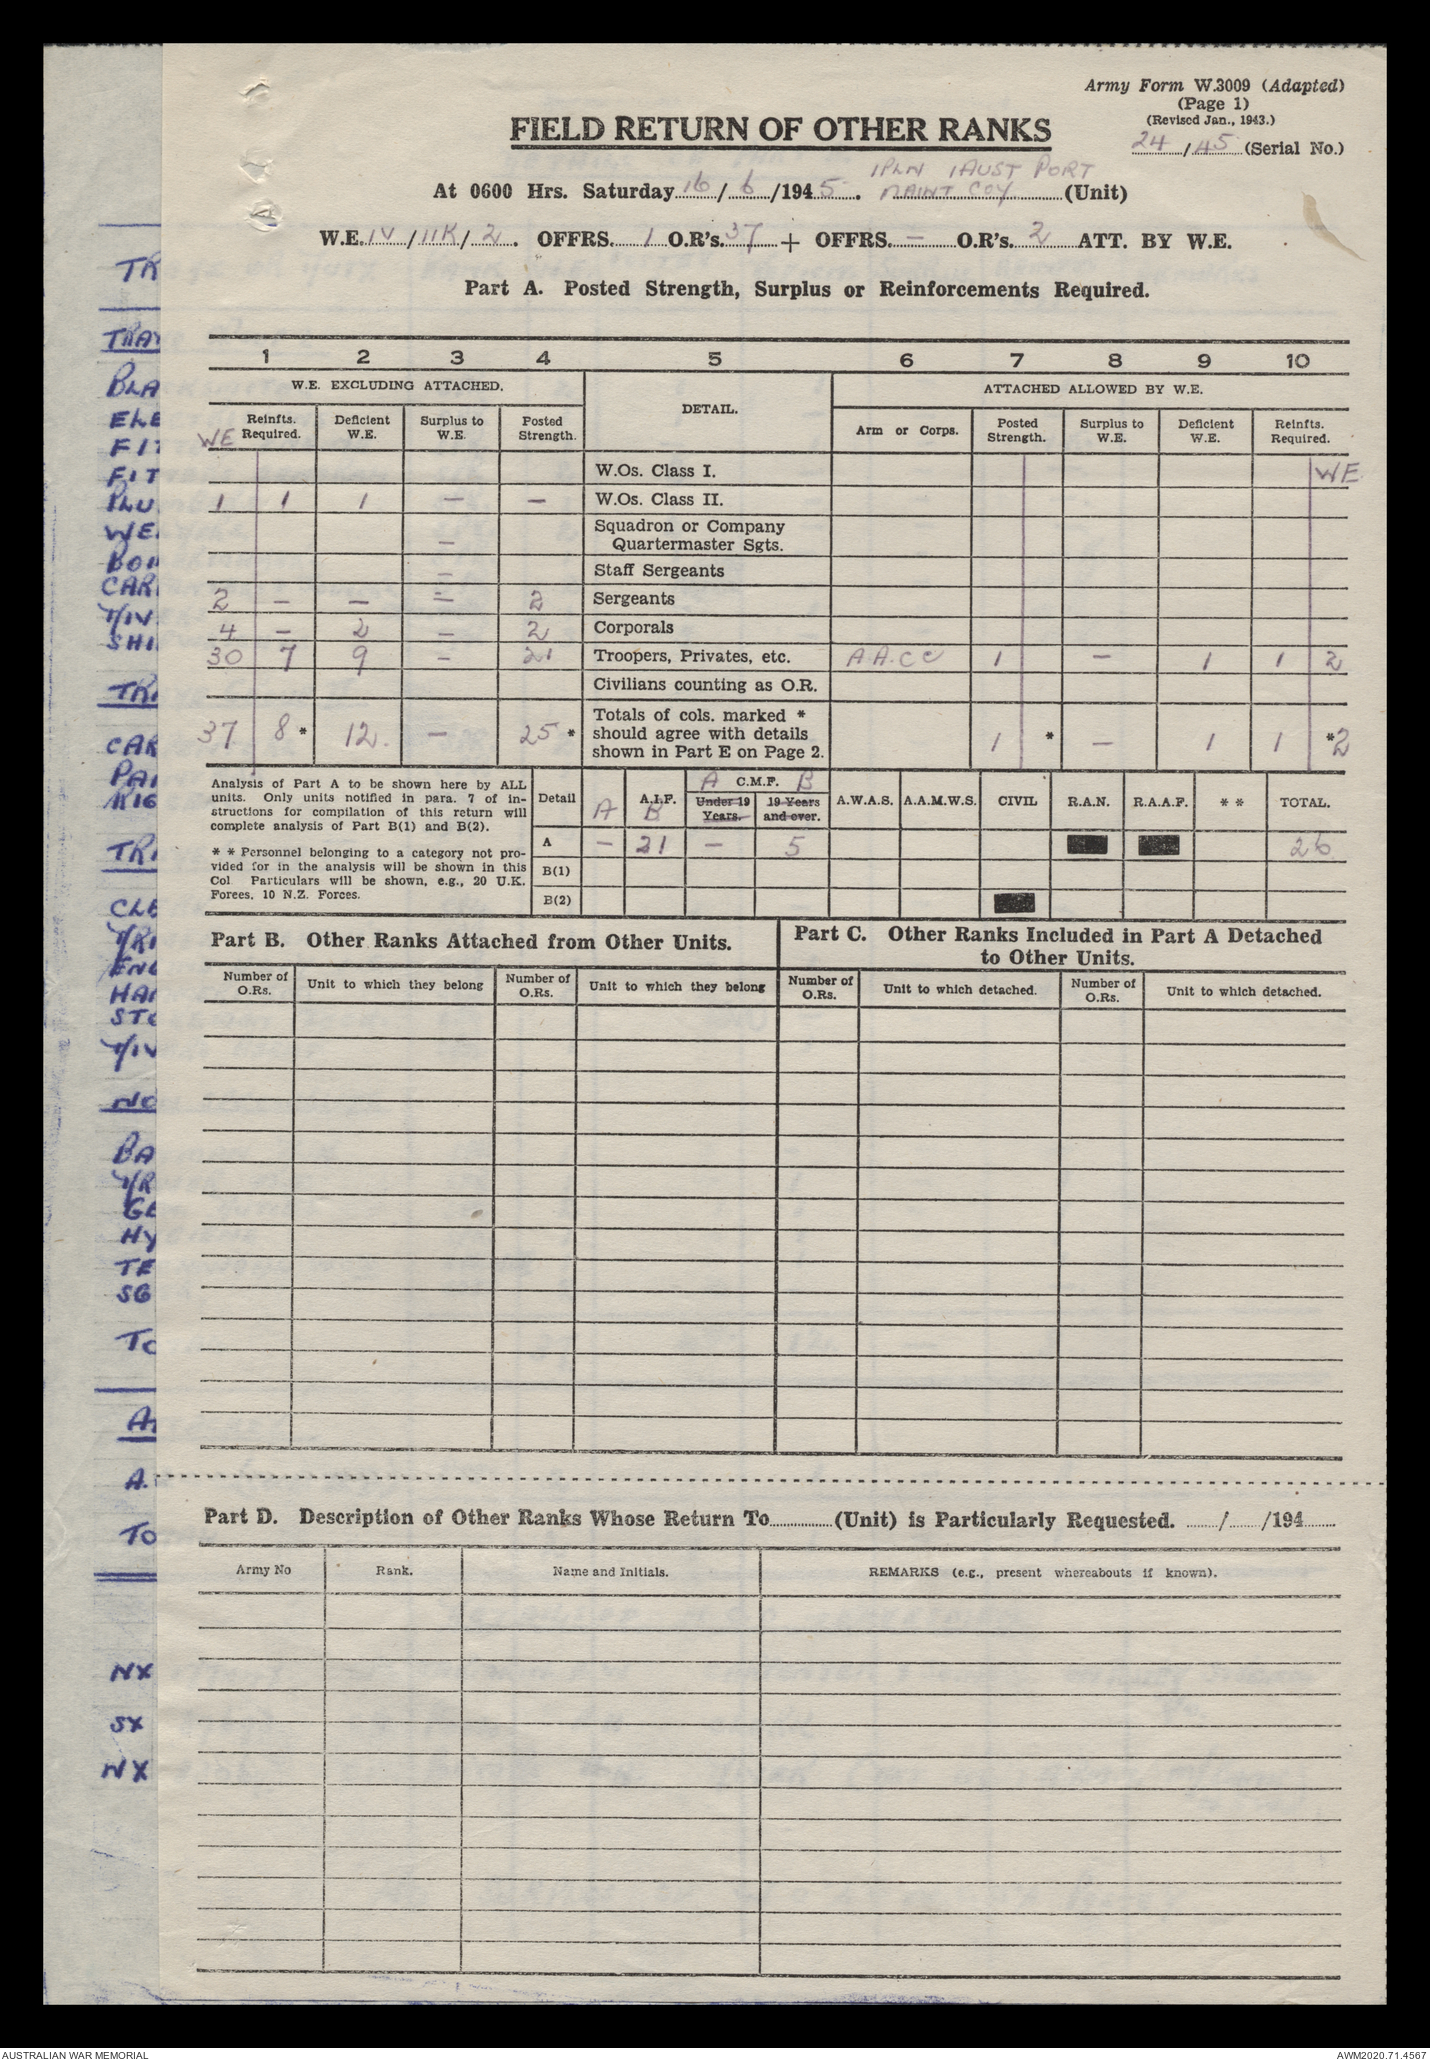 Army Form W.3009 (Adapted)
(Page 1)
(Revised Jan., 1943.)
24/45 (Serial No.)
FIELD RETURN OF OTHER RANKS
1PLN 1AUST PORT
At 0600 Hrs. Saturday 16/6/1945. MAINT COY (Unit)
W.E. IV/11K/2. OFFRS. 1 O.R's. 37 + OFFRS. — O.R's. 2 ATT. BY W.E.
Part A. Posted Strength, Surplus or Reinforcements Required.
1 2 3 4 5 6 7 8 9 10
W.E. EXCLUDING ATTACHED. DETAIL. ATTACHED ALLOWED BY W.E.
WE Reinfts. Required. Deficient W.E. Surplus to W.E. Posted Strength. Arm or Corps. Posted Strength. Surplus to W.E. Deficient W.E. Reinfts. Required.
W.Os. Class I. WE
1 1 1 — — W.Os. Class II.
— Squadron or Company
Quartermaster Sgts.
— Staff Sergeants
2 — — = 2 Sergeants
4 — 2 — 2 Corporals
30 7 9 — 21 Troopers, Privates, etc. A.A.C.C 1 — 1 1 2
Civilians counting as O.R.
Totals of cols. marked *
37 8 * 12. — 25 * should agree with details
shown in Part E on Page 2. 1 * — 1 1 *2
Analysis of Part A to be shown here by ALL
units. Only units notified in para. 7 of in-
structions for compilation of this return will
complete analysis of Part B(1) and B(2).
* * Personnel belonging to a category not pro-
vided for in the analysis will be shown in this
Col. Particulars will be shown, e.g., 20 U.K.
Forces, 10 N.Z. Forces.
Detail A A.I.F. B A C.M.F. B A.W.A.S. A.A.M.W.S. CIVIL R.A.N. R.A.A.F. * * TOTAL.
Under 19 Years. 19 Years and over.
A — 21 — 5 26
B(1)
B(2)
Part B. Other Ranks Attached from Other Units.
Part C. Other Ranks Included in Part A Detached
to Other Units.
Number of O.Rs. Unit to which they belong Number of O.Rs. Unit to which they belong Number of O.Rs. Unit to which detached. Number of O.Rs. Unit to which detached.
Part D. Description of Other Ranks Whose Return To (Unit) is Particularly Requested. / /194
Army No Rank. Name and Initials. REMARKS (e.g., present whereabouts if known).
TR
TRA
BLA
ELE
FIT
FIT
PLU
WE
BOI
CAR
T/IV
SHI
TR
CAR
PAI
RIG
TR
CLE
T/RI
ENG
HAI
STO
T/IV
NO
BA
T/R
GE
HY
TE
SG
TO
A
A.
TO
NX
SX
WX
AUSTRALIAN WAR MEMORIAL
AWM2020.71.4567